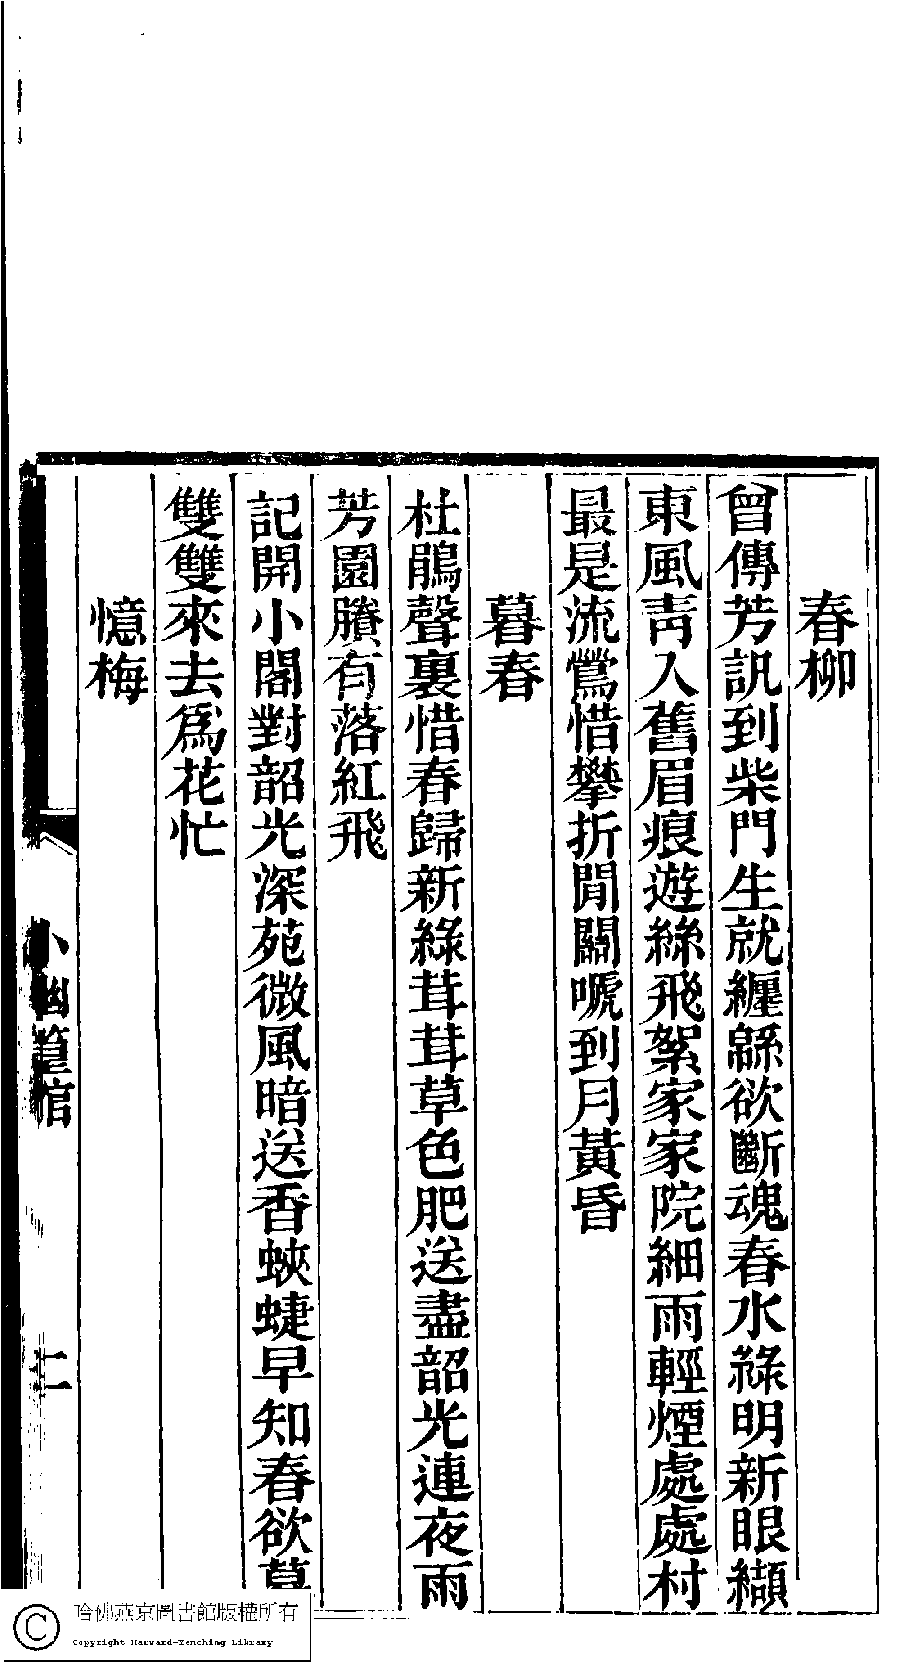 春柳
曾傳芳訊到柴門生就纏緜欲斷魂春水綠明新眼纈
東風靑入舊眉痕遊絲飛絮家家院細雨輕煙處處村
最是流鶯惜攀折閒關嗁到月黃昏
暮春
杜鵑聲裏惜春歸新綠茸茸草色肥送盡韶光連夜雨
芳園賸有落紅飛
記開小閣對韶光深苑微風暗送香蛺蜨早知春欲暮
雙雙來去爲花忙
憶梅
小幽篁館
二
哈佛燕京圖書館版權所有
Copyright Harvard-Yenching Library